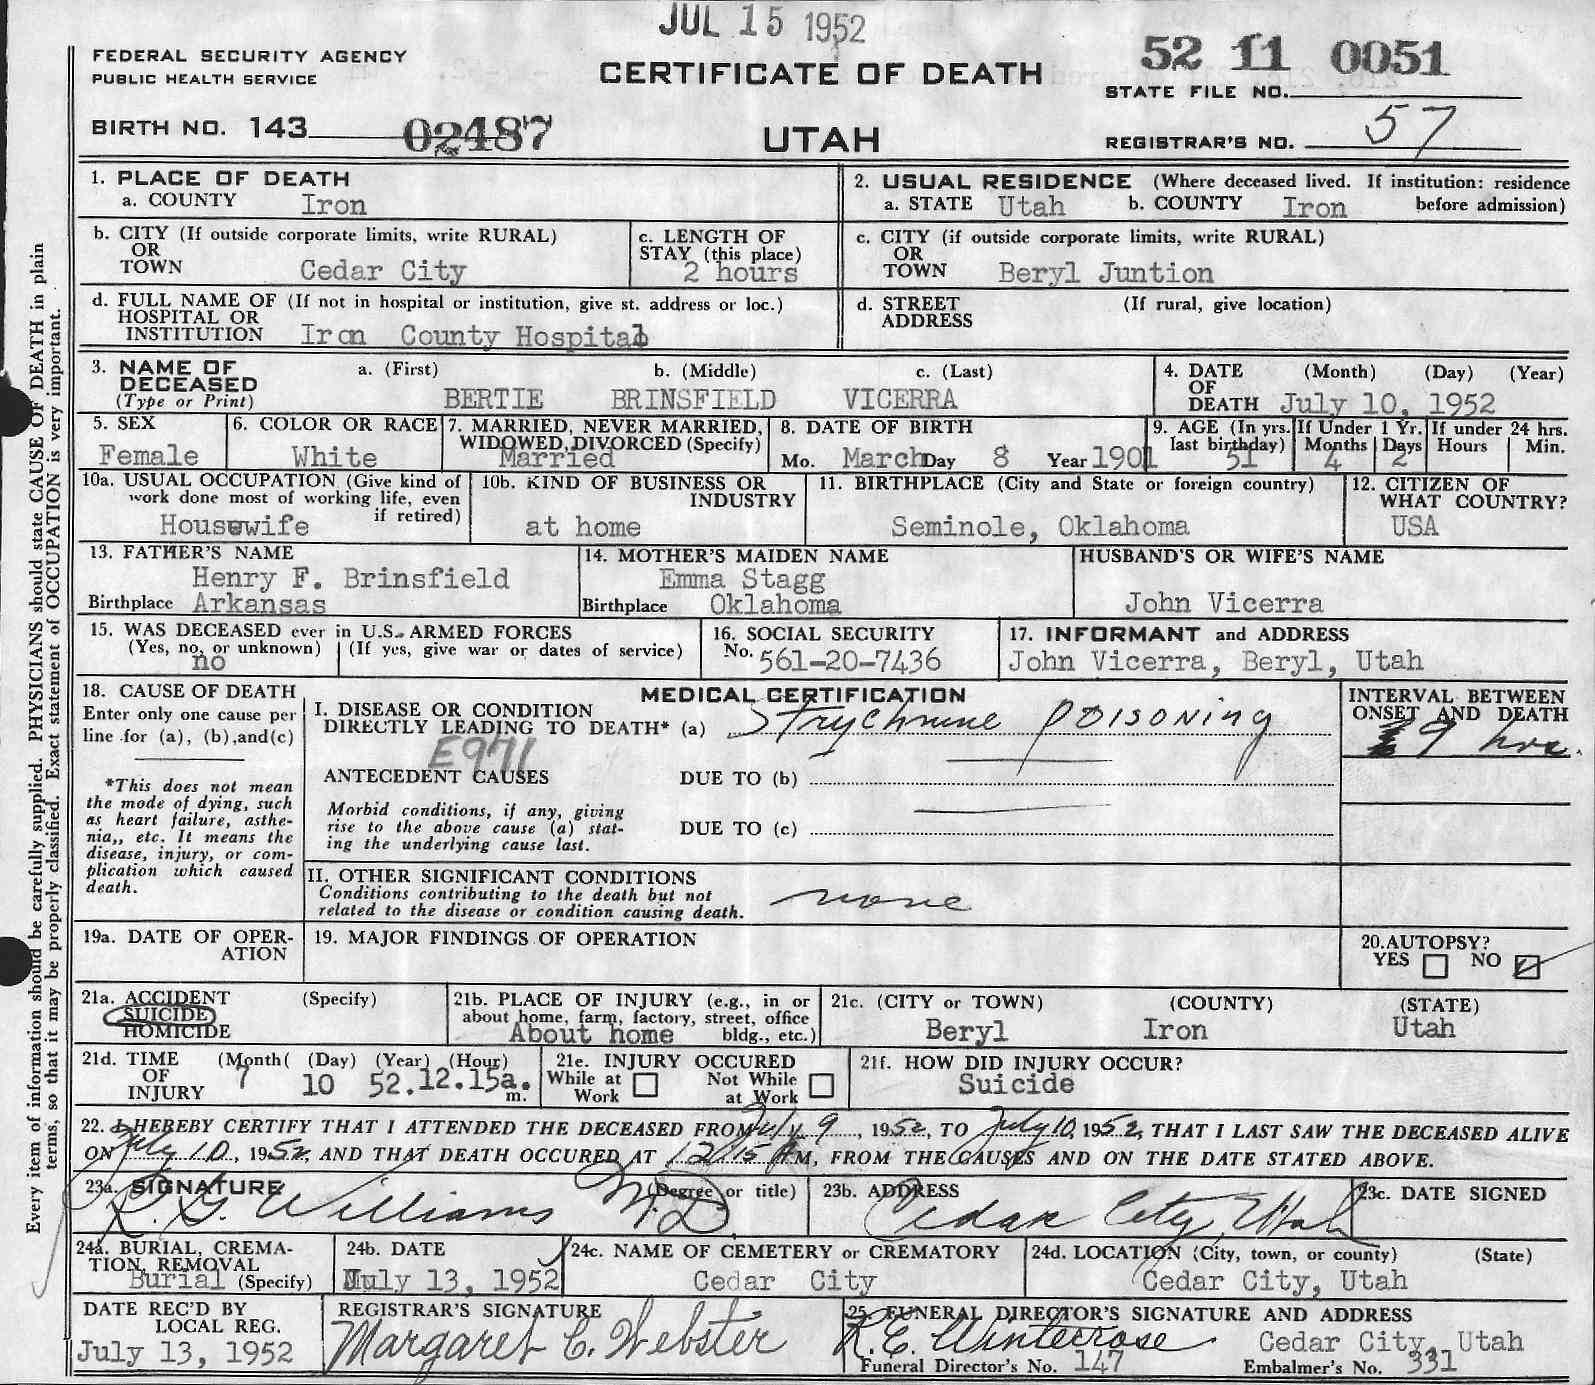 JUL 15 1952
FEDERAL SECURITY AGENCY
PUBLIC HEALTH SERVICE
CERTIFICATE OF DEATH
52 11 0051
STATE FILE NO.
BIRTH NO. 143 02487
UTAH
REGISTRAR'S NO. 57
Every item of information should be carefully supplied. PHYSICIANS should state CAUSE OF DEATH in plain
terms, so that it may be properly classified. Exact statement of OCCUPATION is very important.
1. PLACE OF DEATH
a. COUNTY Iron
2. USUAL RESIDENCE (Where deceased lived. If institution: residence
a. STATE Utah b. COUNTY Iron before admission)
b. CITY (If outside corporate limits, write RURAL)
OR
TOWN Cedar City
c. LENGTH OF
STAY (this place)
2 hours
c. CITY (if outside corporate limits, write RURAL)
OR
TOWN Beryl Juntion
d. FULL NAME OF (If not in hospital or institution, give st. address or loc.)
HOSPITAL OR
INSTITUTION Iron County Hospital
d. STREET (If rural, give location)
ADDRESS
3. NAME OF a. (First) b. (Middle) c. (Last)
DECEASED
(Type or Print) BERTIE BRINSFIELD VICERRA
4. DATE (Month) (Day) (Year)
OF
DEATH July 10, 1952
5. SEX
Female
6. COLOR OR RACE
White
7. MARRIED, NEVER MARRIED,
WIDOWED, DIVORCED (Specify)
Married
8. DATE OF BIRTH
Mo. March Day 8 Year 1901
9. AGE (In yrs.
last birthday)
51
If Under 1 Yr.
Months Days
4 2
If under 24 hrs.
Hours Min.
10a. USUAL OCCUPATION (Give kind of
work done most of working life, even
if retired)
Housewife
10b. KIND OF BUSINESS OR
INDUSTRY
at home
11. BIRTHPLACE (City and State or foreign country)
Seminole, Oklahoma
12. CITIZEN OF
WHAT COUNTRY?
USA
13. FATHER'S NAME
Henry F. Brinsfield
Birthplace Arkansas
14. MOTHER'S MAIDEN NAME
Emma Stagg
Birthplace Oklahoma
HUSBAND'S OR WIFE'S NAME
John Vicerra
15. WAS DECEASED ever in U.S. ARMED FORCES
(Yes, no, or unknown) (If yes, give war or dates of service)
no
16. SOCIAL SECURITY
No. 561-20-7436
17. INFORMANT and ADDRESS
John Vicerra, Beryl, Utah
18. CAUSE OF DEATH
Enter only one cause per
line for (a), (b), and (c)
*This does not mean
the mode of dying, such
as heart failure, asthe-
nia,, etc. It means the
disease, injury, or com-
plication which caused
death.
MEDICAL CERTIFICATION
I. DISEASE OR CONDITION
DIRECTLY LEADING TO DEATH* (a) Strychnine poisoning
E971
ANTECEDENT CAUSES DUE TO (b)
Morbid conditions, if any, giving
rise to the above cause (a) stat-
ing the underlying cause last.
DUE TO (c)
II. OTHER SIGNIFICANT CONDITIONS
Conditions contributing to the death but not
related to the disease or condition causing death.
none
INTERVAL BETWEEN
ONSET AND DEATH
9 hrs.
19a. DATE OF OPER-
ATION
19. MAJOR FINDINGS OF OPERATION
20. AUTOPSY?
YES NO
21a. ACCIDENT (Specify)
SUICIDE
HOMICIDE
21b. PLACE OF INJURY (e.g., in or
about home, farm, factory, street, office
bldg., etc.)
About home
21c. (CITY or TOWN) (COUNTY) (STATE)
Beryl Iron Utah
21d. TIME (Month( (Day) (Year) (Hour)
OF
INJURY 7 10 52. 12.15a. m.
21e. INJURY OCCURED
While at Not While
Work at Work
21f. HOW DID INJURY OCCUR?
Suicide
22. I HEREBY CERTIFY THAT I ATTENDED THE DECEASED FROM July 9, 1952, TO July 10, 1952, THAT I LAST SAW THE DECEASED ALIVE
ON July 10, 1952, AND THAT DEATH OCCURED AT 12 15 A M, FROM THE CAUSES AND ON THE DATE STATED ABOVE.
23a. SIGNATURE (Degree or title)
R. G. Williams M.D.
23b. ADDRESS
Cedar City, Utah
23c. DATE SIGNED
24a. BURIAL, CREMA-
TION, REMOVAL
Burial (Specify)
24b. DATE
July 13, 1952
24c. NAME OF CEMETERY or CREMATORY
Cedar City
24d. LOCATION (City, town, or county) (State)
Cedar City, Utah
DATE REC'D BY
LOCAL REG.
July 13, 1952
REGISTRAR'S SIGNATURE
Margaret C. Webster
25. FUNERAL DIRECTOR'S SIGNATURE AND ADDRESS
R.E. Winterrose Cedar City, Utah
Funeral Director's No. 147 Embalmer's No. 331